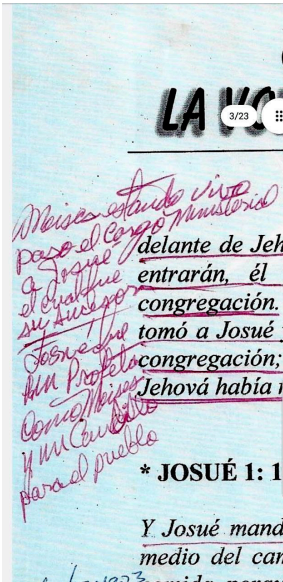 LA VO
3/23
Moises estando vivo
paso el Cargo Ministerial
a Josue
el cual fue
su sucesor
Josue fue
un Profeta
Como Moises
y un Caudillo
para el pueblo
delante de Jeh
entrarán, él
congregación.
tomó a Josué
congregación;
Jehová había
* JOSUÉ 1: 1
Y Josué mand
medio del ca